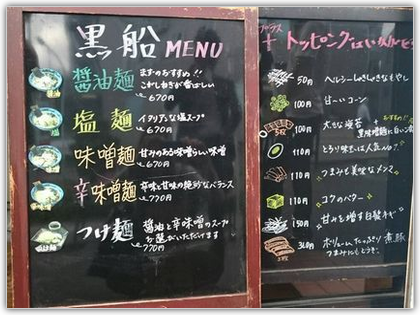 黒船 MENU
醤油麺 まずのおすすめ!!
こがしねぎが香ばしい
670円
塩麺 イタリアンな塩スープ
670円
味噌麺 甘みのある味噌らしい味噌
670円
辛味噌麺 辛味と甘味の絶妙なバランス
770円
つけ麺 醤油と辛味噌のスープ
お選びいただけます
770円
プラス
+ トッピングはいかが
50円 ヘルシーしゃきしゃきなもやし
100円 甘ーいコーン
5枚 100円 大きな海苔
黒味噌麺に
110円 とろり味玉は人気No.1
110円 つまみも美味なメンマ
110円 コクのバター
150円 甘みを増す白髪ネギ
3枚 360円 ボリュームたっぷり煮豚
つまみにもどうぞ。